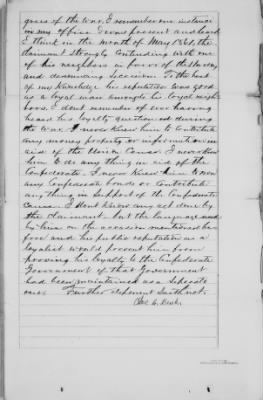 gress of the War. I remember one instance
in my office I was present and heard
I think in the month of May 1861, the
claimant strongly contending with one
of his neighbors in favor of this
and denouncing Secession. To the best
of my knowledge his reputation was good
as a loyal man among his loyal neigh-
bors. I dont remember of ever having
heard his loyalty questioned during
the War. I never knew him to contribute
any money property or information in
aid of the Union Cause. I never knew
him to do any thing in aid of the
Confederate. I never knew him to own
any Confederate bonds or contribute
any thing in support of the Confederate
Cause. I dont know any act done by
the claimant but the language used
by him on the occasion mentioned be-
fore and his public reputation as a
loyalist would prevent him from
proving his loyalty to the Confederate
Government if that Government
had been maintained as a Seperate
one. Further deponent saith not.